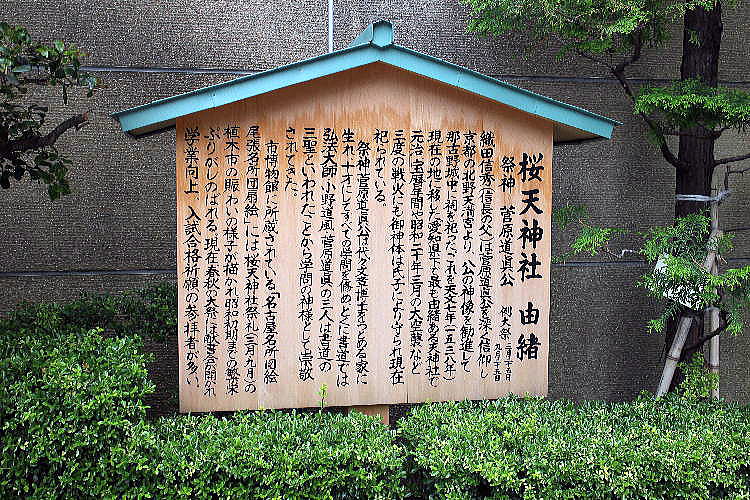 桜天神社 由緒
祭神 菅原道真公 例大祭 三月二十五日 九月二十五日
織田信秀(信長の父)は菅原道真公を深く信仰し
京都の北野天満宮より、公の神像を勧進して
那古野城中に祠を祀った。これを天文七年(一五三八年)
現在の地に移した(愛知県下で最も由緒ある天神社)で
元治、宝暦年間や昭和二十年三月の大空襲など
三度の戦火にも御神体は氏子により守られ現在
祀られている。
祭神菅原道真公は代々文章博士をつとめる家に
生れ、十才にしてすべての学問を修めとくに書道では
弘法大師、小野道風、菅原道真の三人は書道の
三聖といわれたことから学問の神様として崇敬
されてきた。
市博物館に所蔵されている「名古屋名所図絵
尾張名所団扇絵」には、桜天神社祭礼(三月、九月)の
植木市の賑わいの様子が描かれ昭和初期までの繁栄
ぶりがしのばれる。現在春秋の大祭には献書会が開かれ
学業向上、入試合格祈願の参拝者が多い。